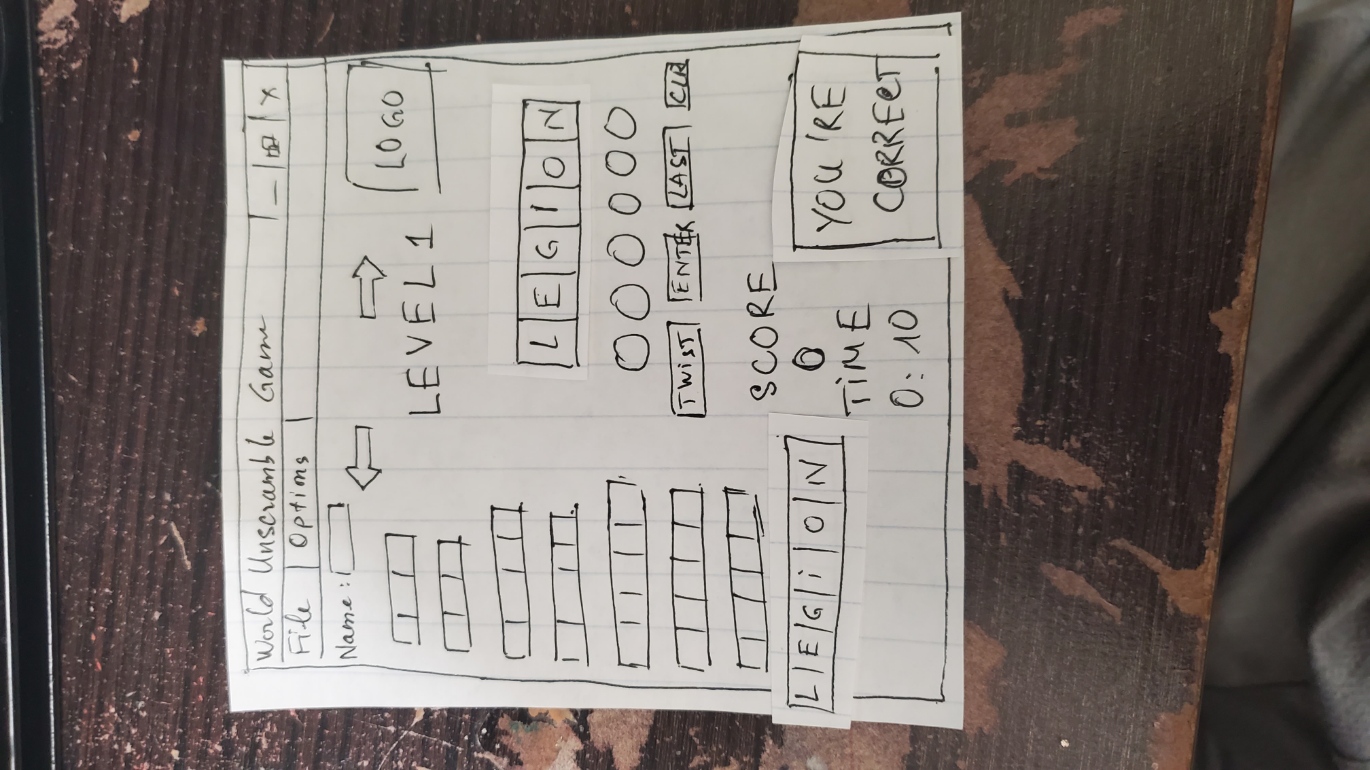 World Unscramble Game _ x
File Options
Name:
LOGO
LEVEL 1
LEGION
TWIST ENTER LAST CLR
SCORE
0
LEGION
YOU'RE
CORRECT
TIME
0:10